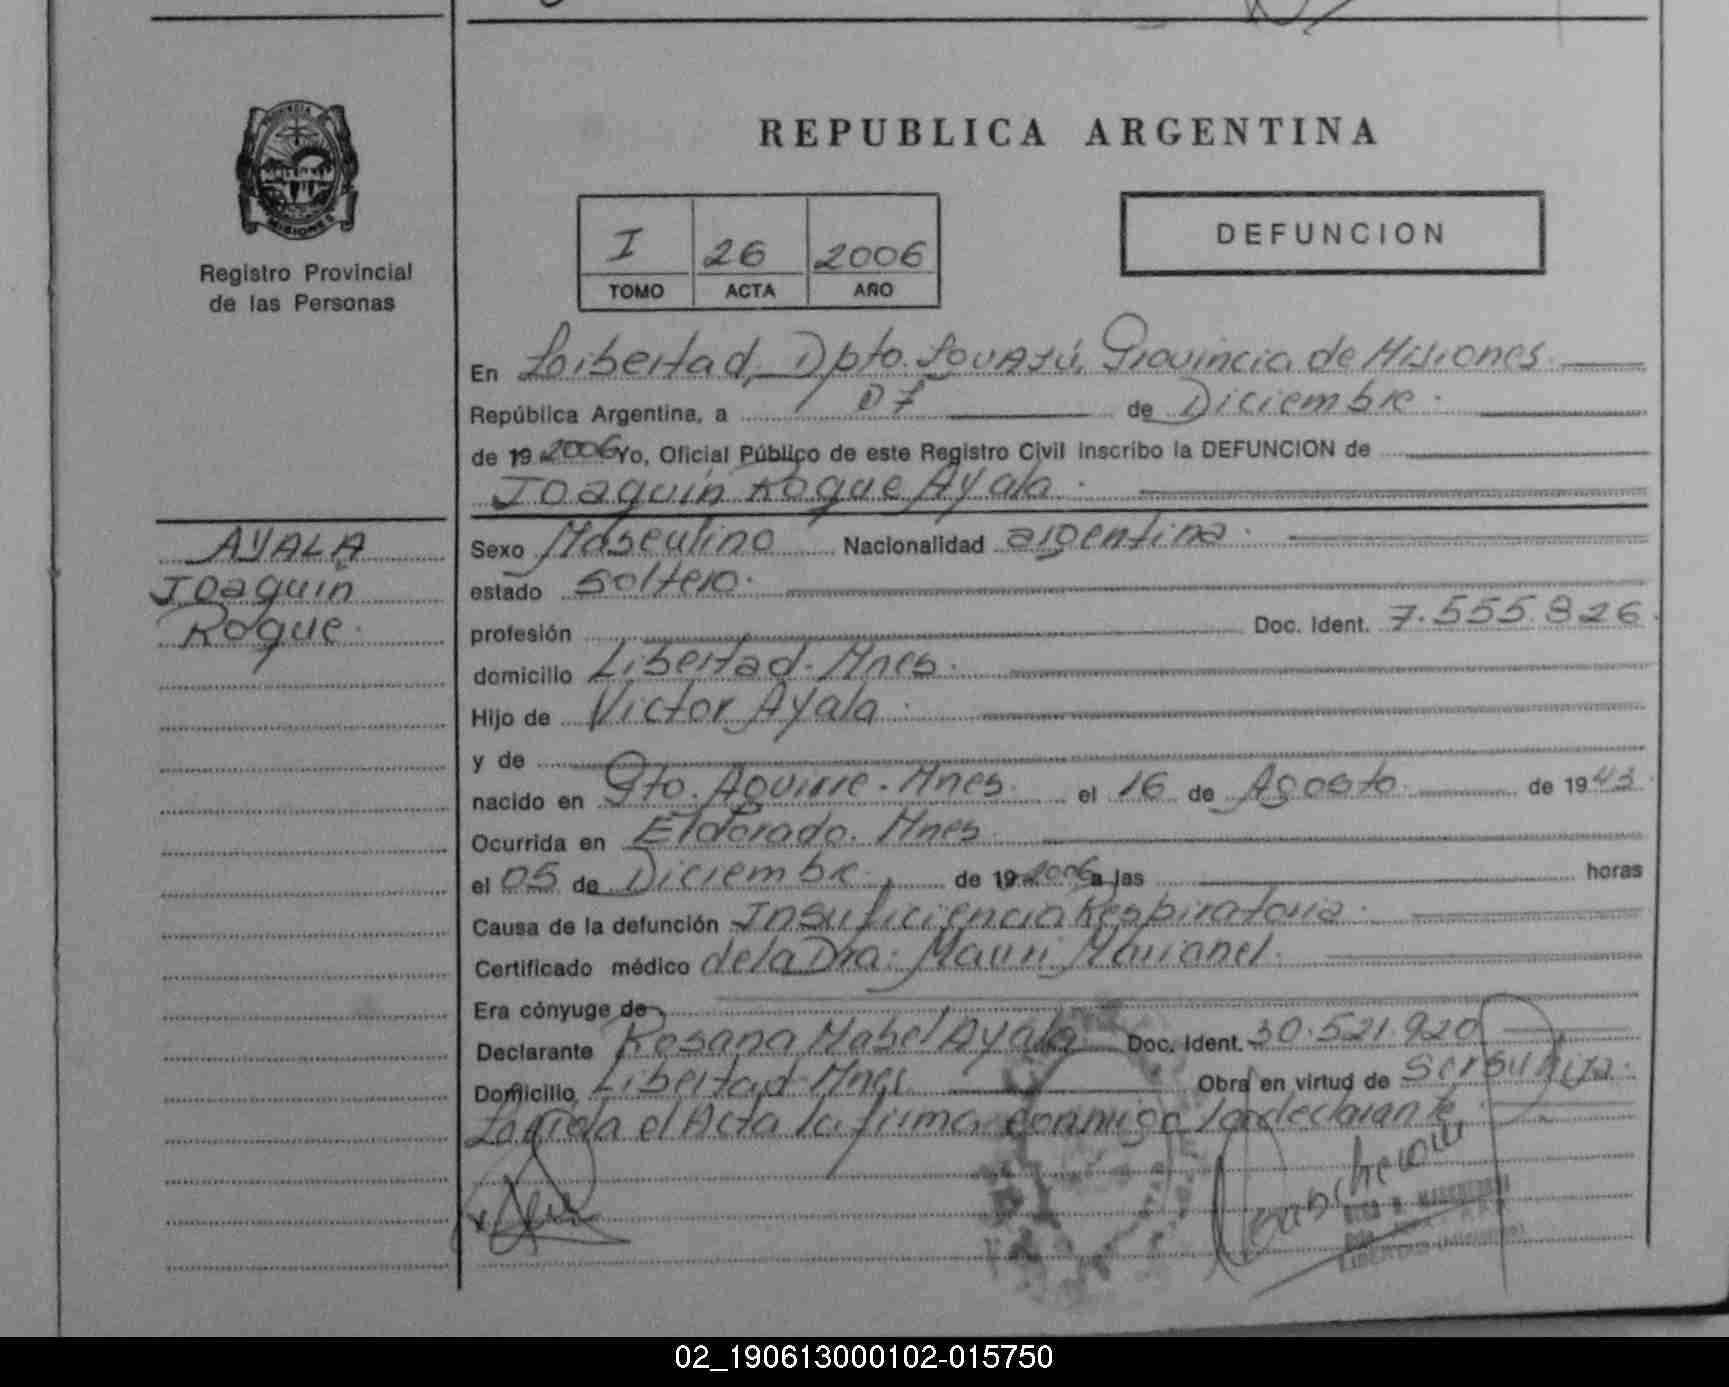 REPUBLICA ARGENTINA
PROVINCIA DE
MISIONES
Registro Provincial
de las Personas
I 26 2006
TOMO ACTA AÑO
DEFUNCION
En Libertad, Dpto. Iguazú, Provincia de Misiones.
República Argentina, a 07 de Diciembre.
de 19 2006 Yo, Oficial Público de este Registro Civil inscribo la DEFUNCION de
Joaquin Roque Ayala.
AYALA
Joaquin
Roque.
Sexo Masculino Nacionalidad argentina.
estado soltero.
profesión Doc. Ident. 7.555.826.
domicilio Libertad. Mnes.
Hijo de Victor Ayala.
y de
nacido en Pto. Aguirre. Mnes. el 16 de Agosto de 1943.
Ocurrida en Eldorado. Mnes.
el 05 de Diciembre. de 19 2006 a las horas
Causa de la defunción Insuficiencia Respiratoria.
Certificado médico de la Dra: Mauri Marianel.
Era cónyuge de
Declarante Rosana Mabel Ayala Doc. Ident. 30.521.920
Domicilio Libertad Mnes Obra en virtud de ser su hija.
Leída el Acta la firma conmigo la declarante.
LIBERTAD (MISIONES)
02_190613000102-015750